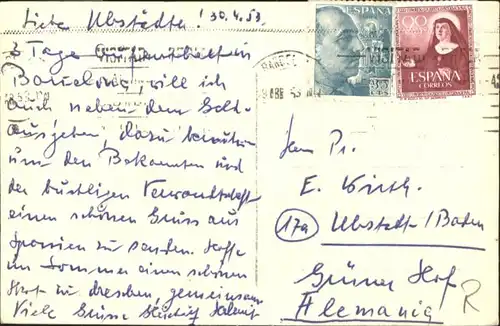 Liebe Ubstädter! 30.4.53.
3 Tage Aufenthalt in
Barcelona, will ich
auch neben dem Geld-
ausgeben, dazu benützen
um den Bekannten und
der dortigen Verwandtschaft
einen schönen Gruss aus
Spanien zu senden. Hoffe
im Sommer einen schönen
zu dreschen, gemeinsam
Viele Grüsse Helmut
ESPAÑA
CORREOS
ESPAÑA
CORREOS
VISITAD
E. Wirth.
17a Ubstadt/Baden
Grüner Hof
Alemania
R